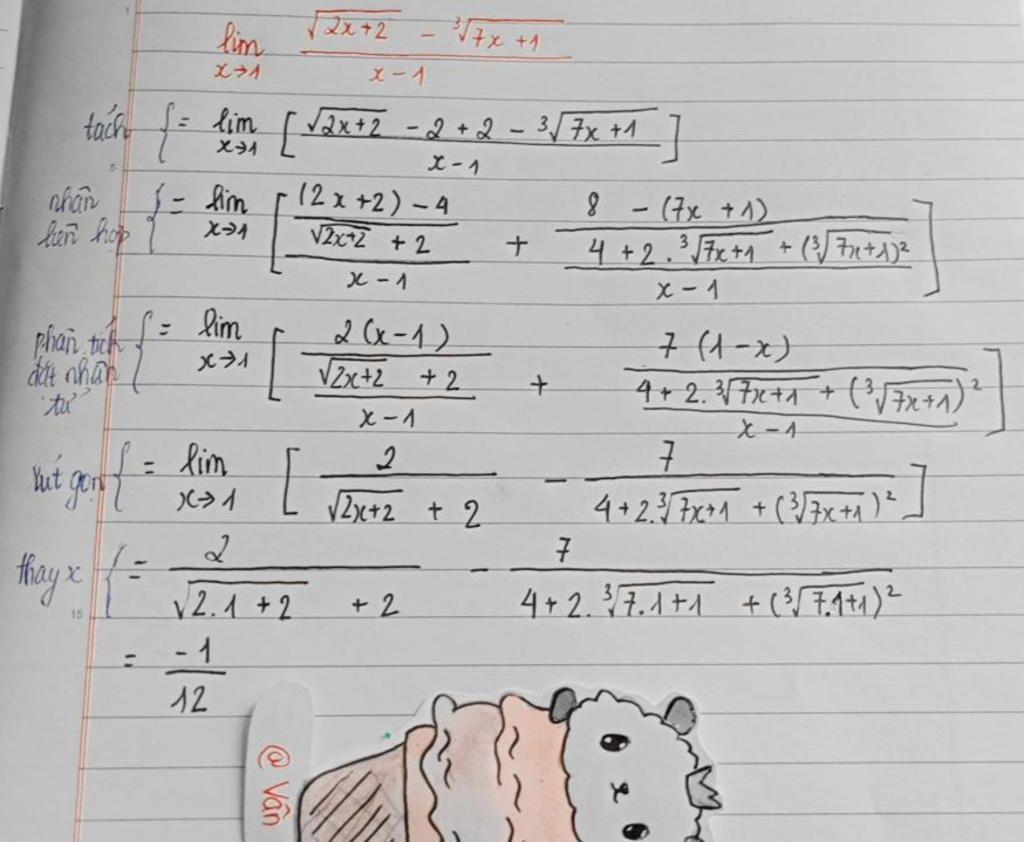 lim x→1 (√(2x+2) - ∛(7x+1)) / (x-1)
tách { = lim x→1 [ (√(2x+2) - 2 + 2 - ∛(7x+1)) / (x-1) ]
nhân liên hợp { = lim x→1 [ (((2x+2) - 4) / (√(2x+2) + 2)) / (x-1) + ((8 - (7x+1)) / (4 + 2.∛(7x+1) + (∛(7x+1))²)) / (x-1) ]
phân tích đặt nhân tử { = lim x→1 [ ((2(x-1)) / (√(2x+2) + 2)) / (x-1) + ((7(1-x)) / (4 + 2.∛(7x+1) + (∛(7x+1))²)) / (x-1) ]
rút gọn { = lim x→1 [ 2 / (√(2x+2) + 2) - 7 / (4 + 2.∛(7x+1) + (∛(7x+1))²) ]
thay x { = 2 / (√(2.1+2) + 2) - 7 / (4 + 2.∛(7.1+1) + (∛(7.1+1))²)
15
= -1/12
@ Vân